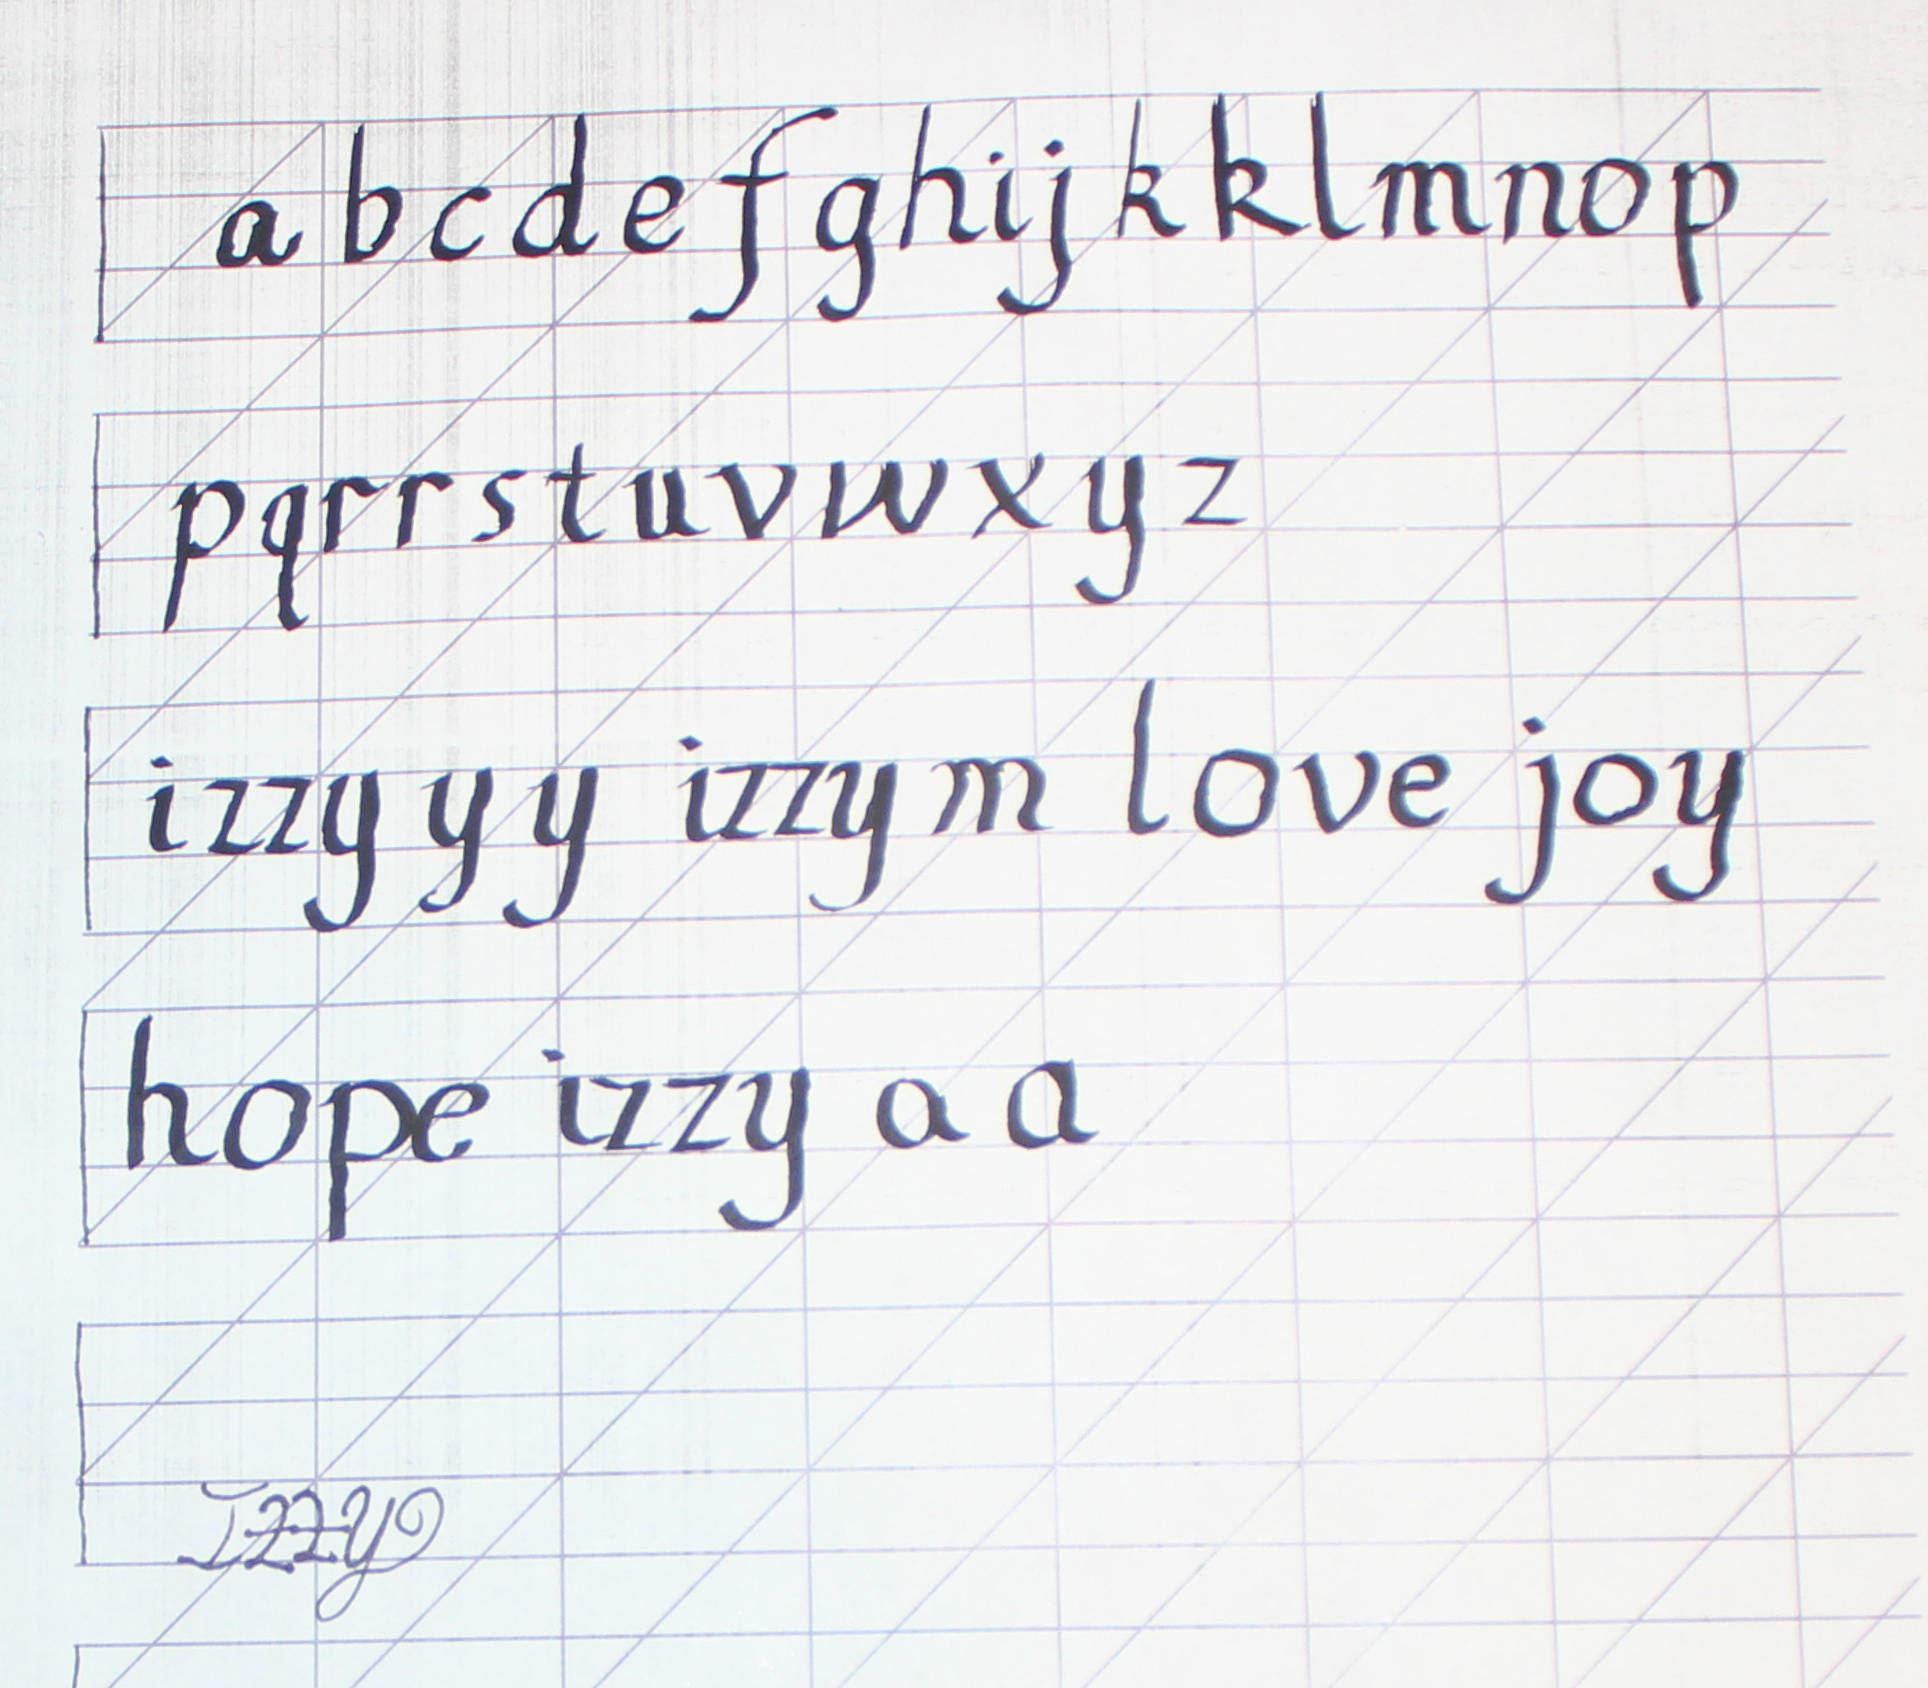 a b c d e f g h i j k k l m n o p
p q r r s t u v w x y z
izzy y y izzy m love joy
hope izzy a a
Izzy